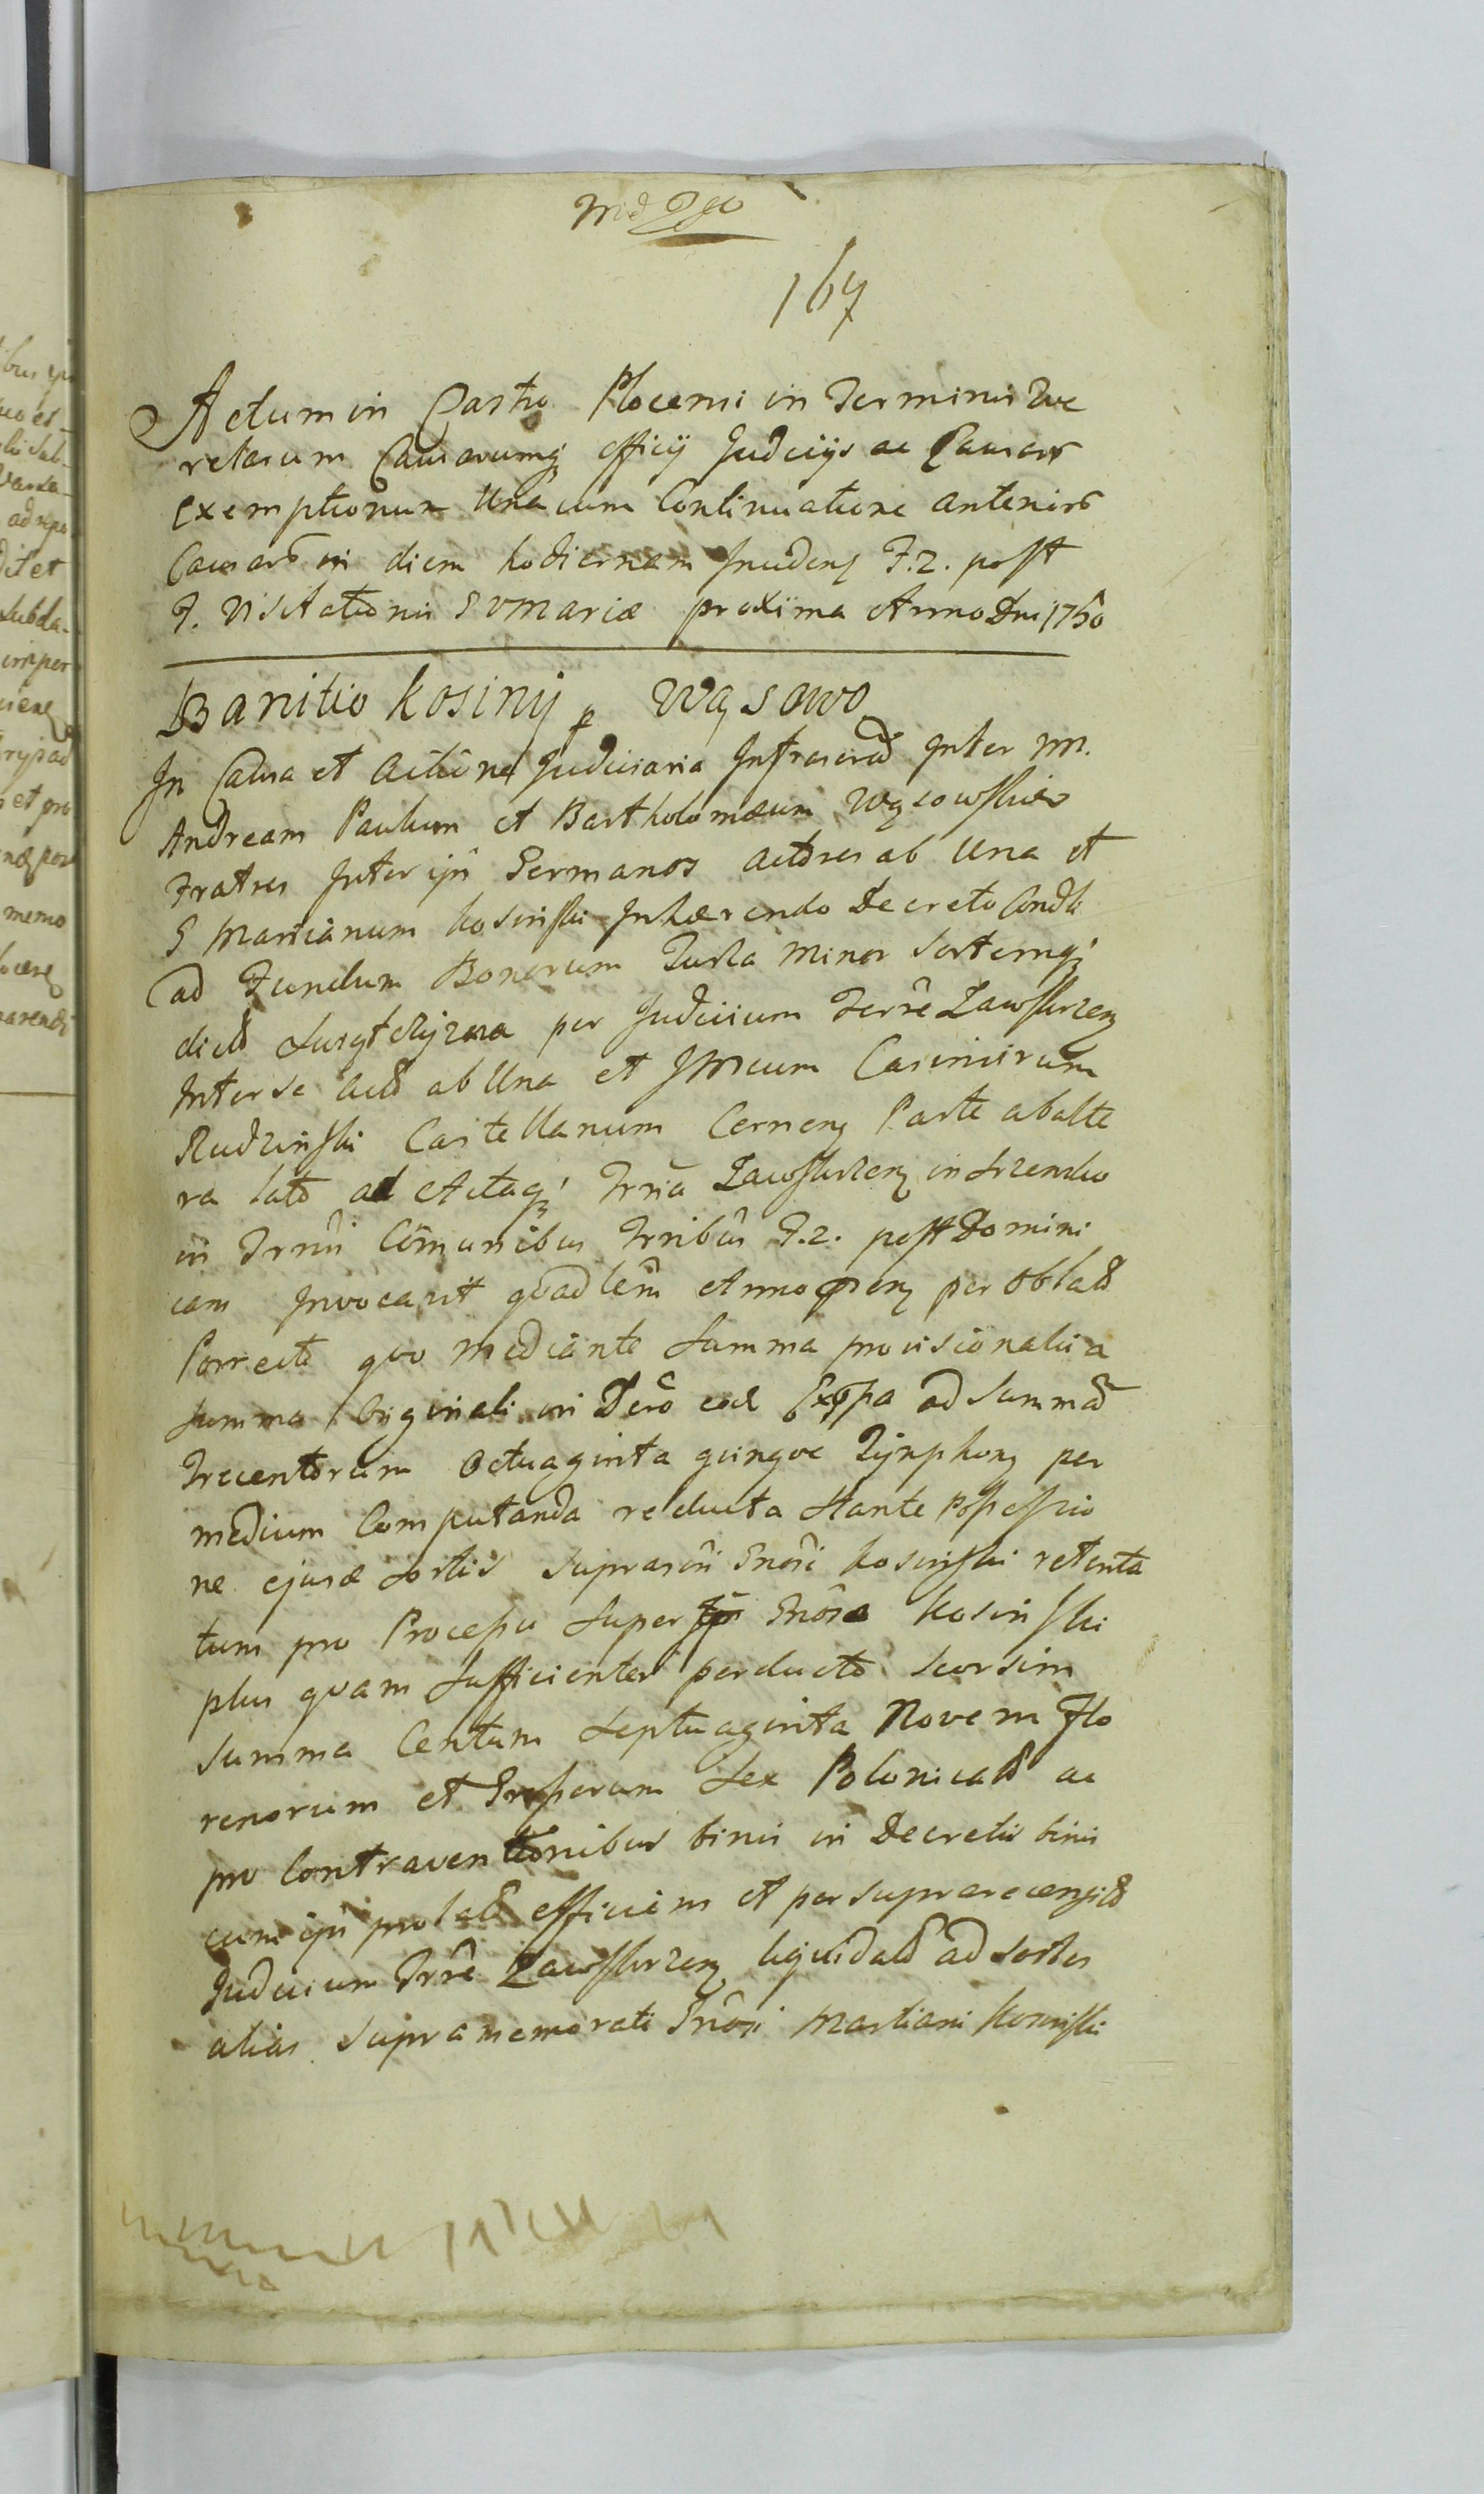 167
Actum in Castro Plocensi in Terminis Dec
retorum Causarumq officij Judicijs ac Causar
Exemptionum Una cum Continuatione anterior
Causar in diem hodiernam Inciden F. 2. post
F. Visitationis S V Mariæ proxima Anno Dni 1750
Banitio Kosinij p Wąsowo
In Causa et actione Judiciaria Infrascrip Inter M.
Andream Paulum et Bartholomæum Wąsowskie
Fratres Inter ipō Germanos actores ab Una et
G Marcianum Kosinski Inhærendo Decreto Condli
ad Fundum Bonorum minor Sortemq
dict per Judicium Terrē Zawskrzen
Inter se ab Una et Casimirum
Rudzinski Castellanum Cernen Parte ab alte
ra lato ad Actaq Trria Zawskrzen in Srzensko
in Trnii Comunibus Trribus F. 2. post Domini
cam Invocavit qvadlem Anno pren per Oblat
Porrecto qvo mediante Summa provisionalis a
Summa Originali in Decō eod Expa ad Summā
Trecentorum Octuaginta qvinqve Tijnphon per
medium Computanda reducta Stante Possessio
ne ejusd Sortis Suprascri Gnosi Kosinski retenta
tum pro Processu Super Gnoso Kosinski
plus qvam Sufficienter perducto Seorsim
Summa Centum Septuaginta Novem Flo
renorum et Grossorum Sex Polonicali ac
pro Contraventionibus binis in Decretis binis
cum ipō prolat efficiem et per Suprarecensit
Judicium Trrē Zawskrzen liqvidat ad Sortes
alias Supramemorati Gnosi Martiani Kosinski